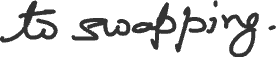 to swapping.